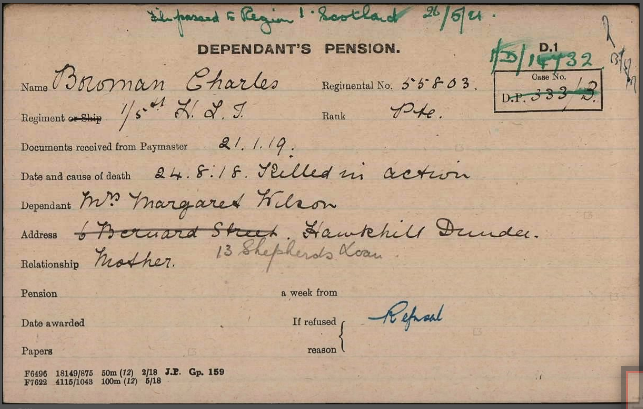 passed to Region 1. Scotland 26/5/21.
DEPENDANT'S PENSION.
D.1
1/D/14732
Name Bowman Charles
Regimental No. 55803.
Case No.
D.P.
Regiment or Ship 1/5th H. L. I.
Rank Pte.
Documents received from Paymaster 21.1.19.
Date and cause of death 24.8.18. Killed in action
Dependant Mrs Margaret Wilson
Address 6 Bernard Street. Hawkhill Dundee.
13 Shepherds Loan
Relationship Mother.
Pension a week from
Date awarded If refused Refusal
Papers reason
F6496 18149/875 50m (12) 2/18 J.P. Gp. 159
F7622 4115/1043 100m (12) 5/18